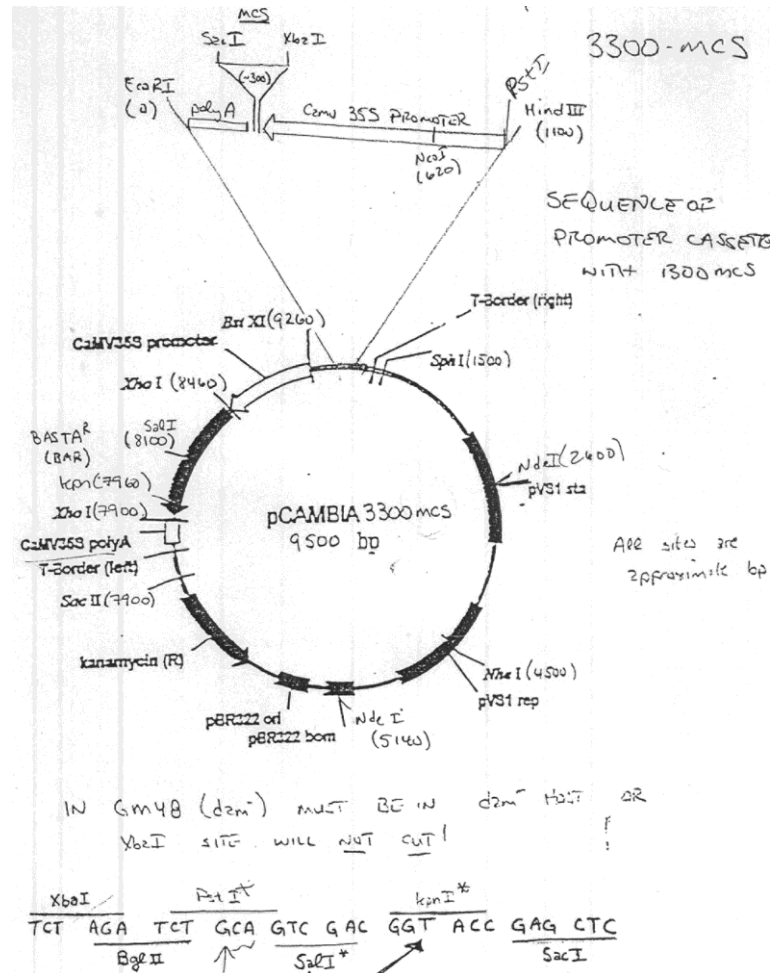 3300-MCS
MCS
SacI XbaI
(~300)
EcoRI
(0)
polyA
CaMV 35S PROMOTER
PstI
HindIII
(1100)
NcoI
(620)
SEQUENCE OF
PROMOTER CASSETTE
WITH 1300 MCS
T-Border (right)
Bst XI (9260)
CaMV35S promoter
Sph I (1500)
Xho I (8460)
SalI
(8100)
BASTAR
(BAR)
Kpn (7960)
Xho I (7900)
CaMV35S polyA
T-Border (left)
Sac II (7900)
kanamycin (R)
pBR322 ori
pBR322 bom
Nde I
(5140)
Nde I (2600)
pVS1 sta
pCAMBIA 3300 MCS
9500 bp
All sites are
approximate bp
Nhe I (4500)
pVS1 rep
IN GM48 (dam-) MUST BE IN dam- HOST OR
XbaI SITE WILL NOT CUT!
XbaI PstI* KpnI*
TCT AGA TCT GCA GTC GAC GGT ACC GAG CTC
BglII SalI* SacI